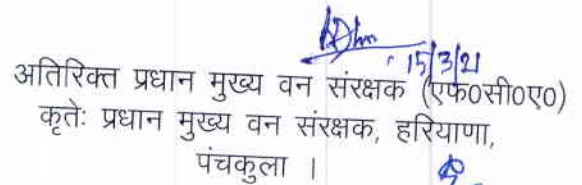 15/3/21
अतिरिक्त प्रधान मुख्य वन संरक्षक (एफ0सी0ए0)
कृतेः प्रधान मुख्य वन संरक्षक, हरियाणा,
पंचकुला ।